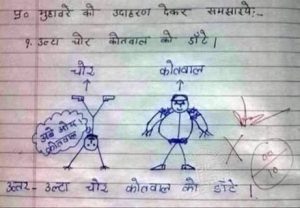 प्र० मुहावरे को उदाहरण देकर समझाइये:-
१. उल्टा चोर कोतवाल को डाँटे।
चोर कोतवाल
अबे ओय
कोतवाल
00
10
उत्तर- उल्टा चोर कोतवाल को डाँटे।